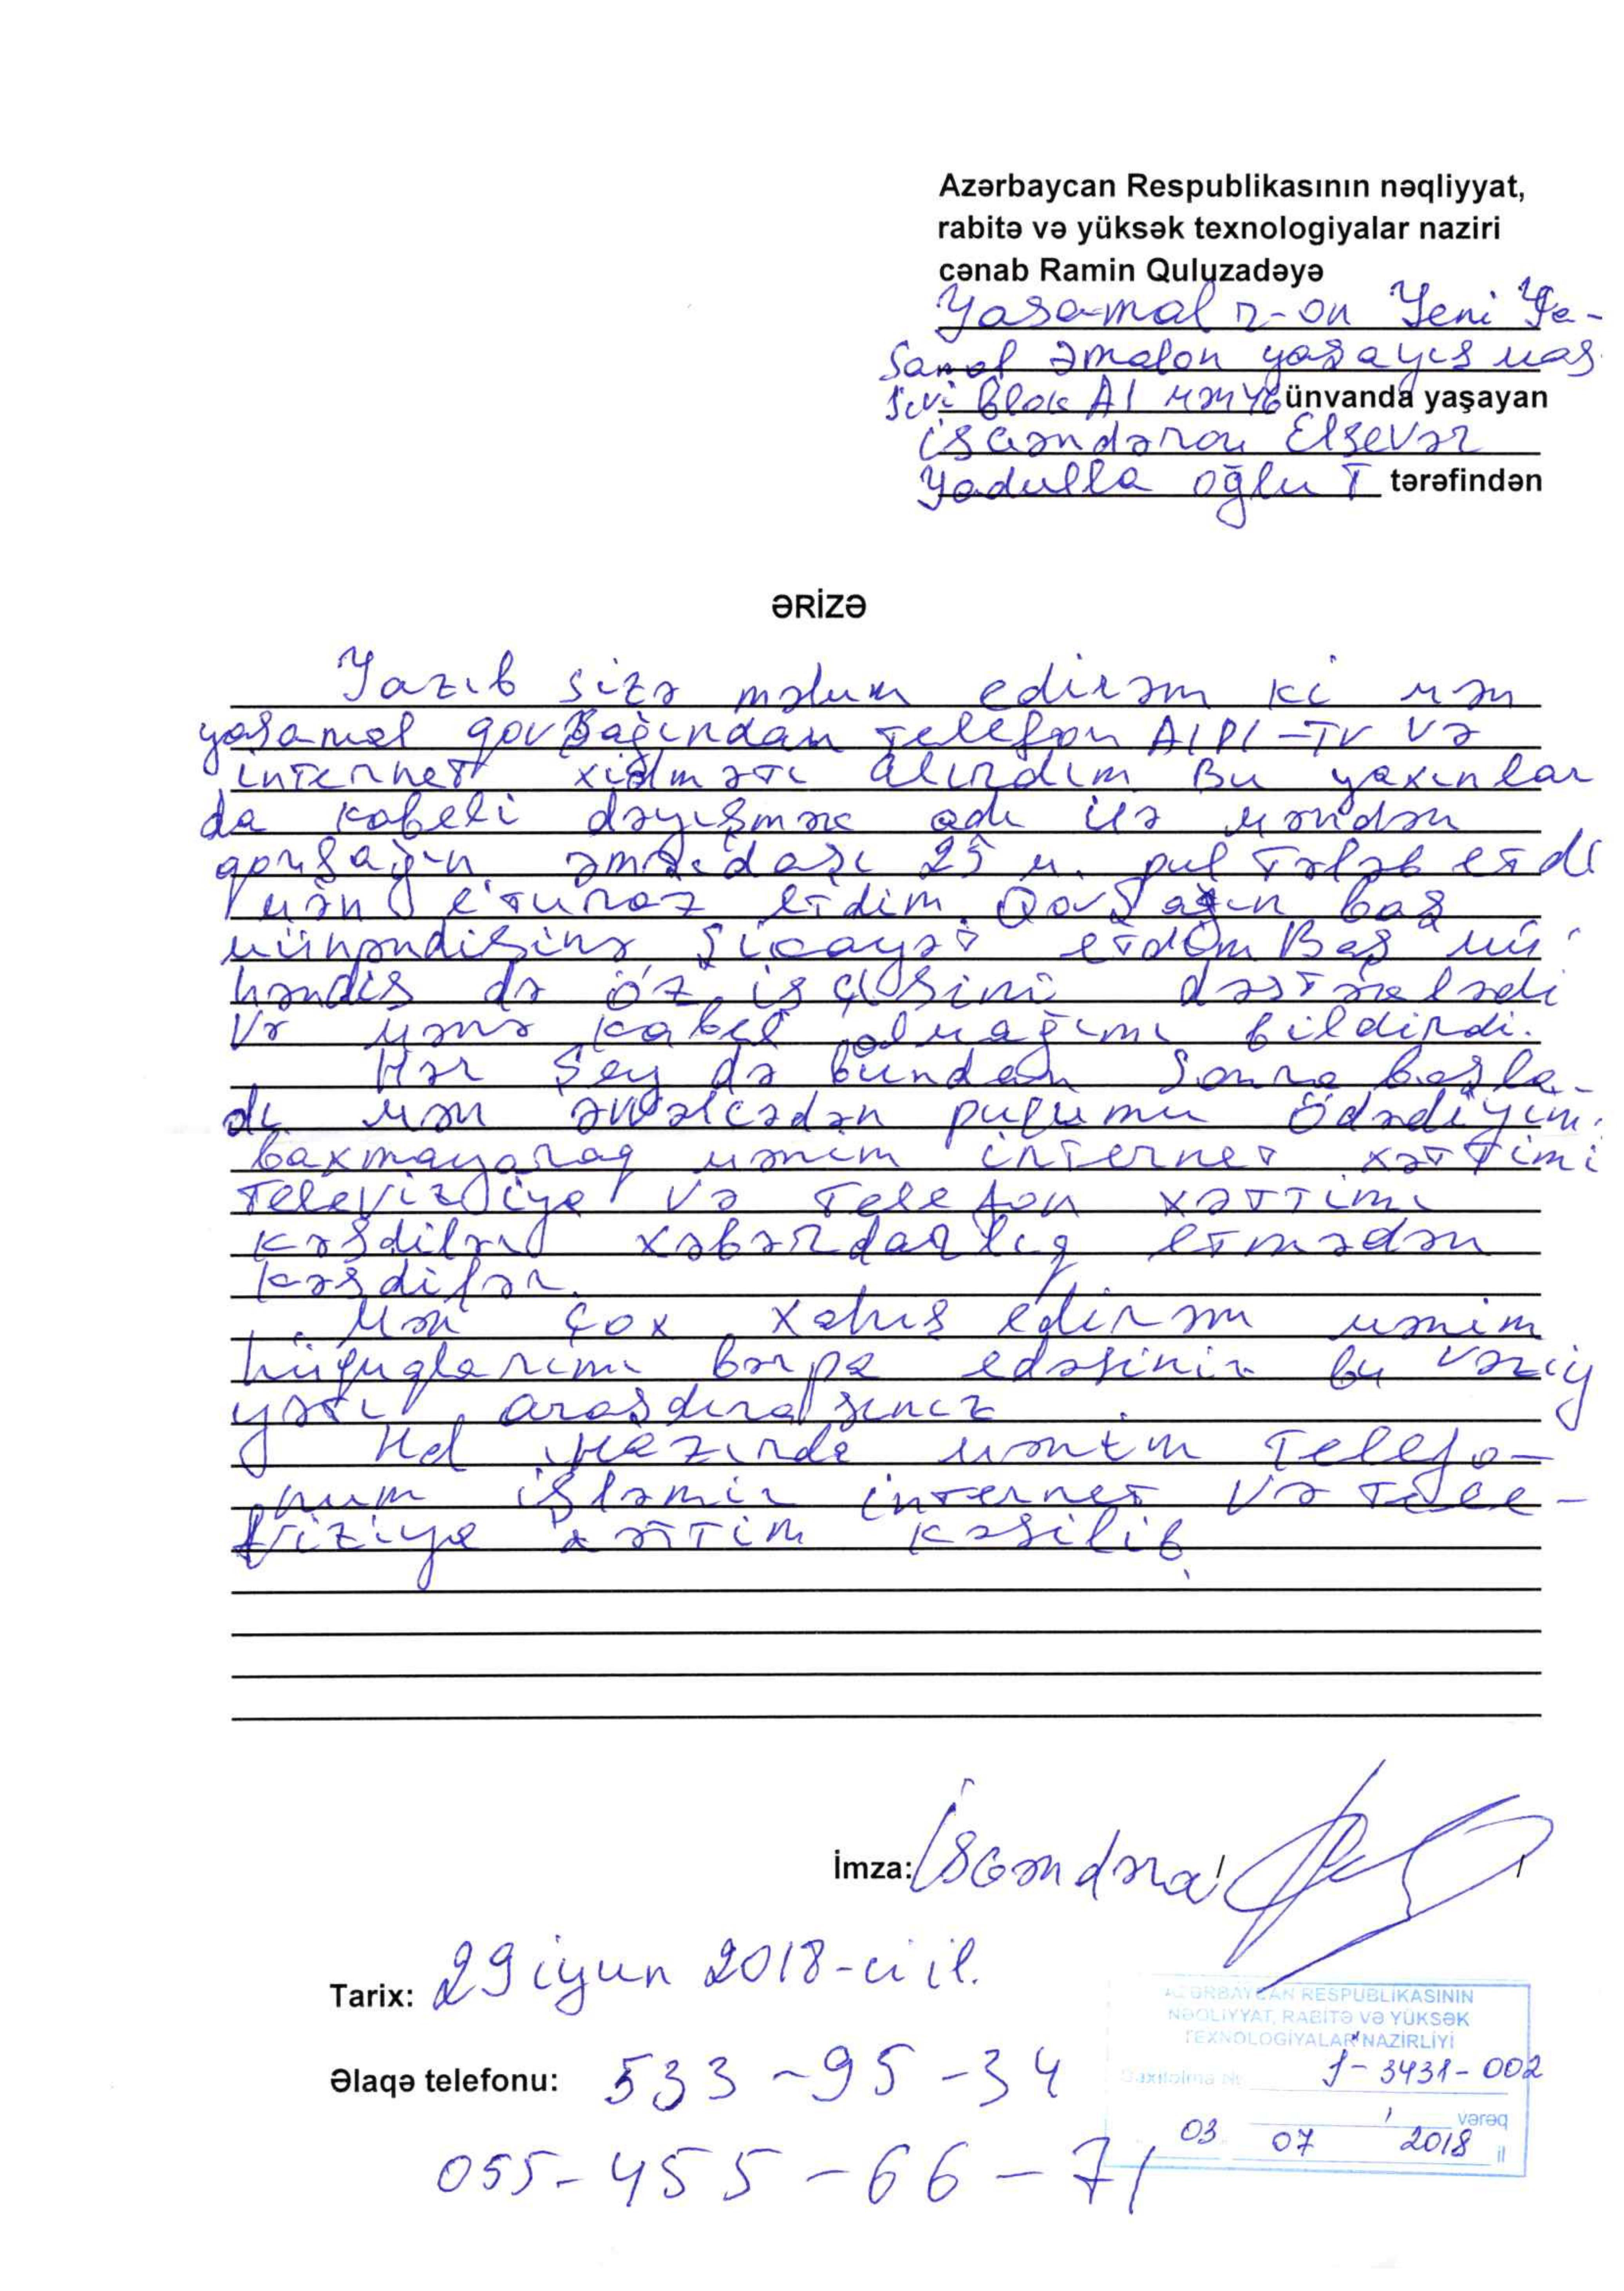 Azərbaycan Respublikasının nəqliyyat,
rabitə və yüksək texnologiyalar naziri
cənab Ramin Quluzadəyə
Yasamal r-on Yeni Ya-
samal yaşayış mas
sivi Blok A1 ünvanda yaşayan
İsgəndərov Elsevər
Yadulla oğlu T tərəfindən
ƏRİZƏ
Yazıb sizə məlum edirəm ki mən
yasamal qovşağından telefon AIPI-TV və
internet xidməti alırdım Bu yaxınlar
da kabeli dəyişmək adı ilə məndən
qovşağın əməkdaşı 25 m. pul tələb etdi
mən etiraz etdim. Qovşağın baş
mühəndisinə şikayət etdim Baş mü
həndis də öz işçisini dəstəklədi
və mənə kabel olmağımı bildirdi.
Hər şey də bundan sonra başla-
dı mən əvvəlcədən pulumu ödədiyim
baxmayaraq mənim internet xəttimi
televiziya və telefon xəttimi
kəsdilər xəbərdarlıq etmədən
kəsdilər.
Mən çox xahış edirəm mənim
hüquqlarımı bərpa edəsiniz bu vəziy
yəti araşdırasınız
Hal hazırda mənim telefo-
num işləmir internet və tele-
viziya xəttim kəsilib.
İmza: İsgəndərov
Tarix: 29 iyun 2018-ci il.
Əlaqə telefonu: 533-95-34
055-455-66-71
AZƏRBAYCAN RESPUBLİKASININ
NƏQLİYYAT, RABİTƏ VƏ YÜKSƏK
TEXNOLOGİYALAR NAZİRLİYİ
Daxilolma № J-3431-002
vərəq
03 07 2018 il